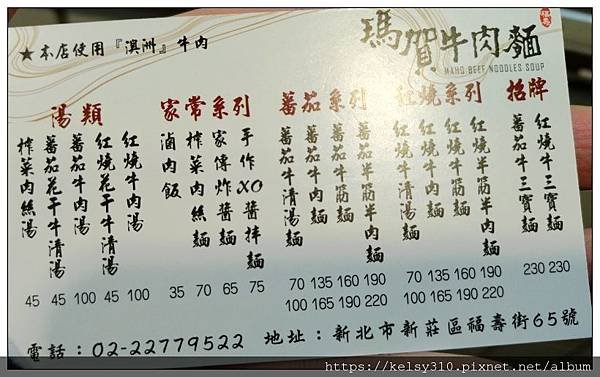 ★本店使用『澳洲』牛肉
瑪賀牛肉麵
MAHO BEEF NOODLES SOUP
招牌
紅燒牛三寶麵 230
番茄牛三寶麵 230
紅燒系列
紅燒半筋半肉麵 190 220
紅燒牛筋麵 160 190
紅燒牛肉麵 135 165
紅燒牛清湯麵 70 100
蕃茄系列
番茄半筋半肉麵 190 220
番茄牛筋麵 160 190
番茄牛肉麵 135 165
番茄牛清湯麵 70 100
家常系列
手作XO醬拌麵 75
家傳炸醬麵 65
榨菜肉絲麵 70
滷肉飯 35
湯類
紅燒牛肉湯 100
紅燒花干牛清湯 45
蕃茄牛肉湯 100
蕃茄花干牛清湯 45
榨菜肉絲湯 45
電話：02-22779522 地址：新北市新莊區福壽街65號
https://kelsy310.pixnet.net/album